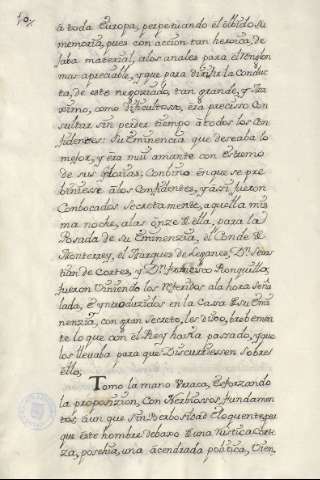 à toda Europa, perpetuando el olbido su
memoria, pues con accion tan heroica, de
jaba material, a los anales para el renglon
mas apreciable, y que para dirixir la conduc
ta, de este negociado, tan grande, y
ximo, como dificultoso, era preciso Con
sultar sin perder tiempo à todos los con
fidentes: Su Eminencia que deseaba lo
mejor, y era mui amante con estremo
de sus glorias; Combino en que se pre
biniesse à los Confidentes, y assi fueron
Combocados secretamente, aquella mis
ma noche, a las onze de ella, para la
Posada de su Eminenzia, el Conde de
Monterrey, el Marques de Leganes, Dn. Sevas
tian de Cortes, y Dn. Francisco Ronquillo,
fueron viniendo los referidos ala hora Seña
lada, è yntroducidos en la Casa de su Emi
nenzia, con gran secreto, les dixo, brebemen
te lo que con el Rey havia passado, y que
los llevaba para que Discurriessen sobre
ello;
Tomo la mano esforzando
la proposizion, con Nerbiosos, fundamen
tos, aun que sin Verbosidad Eloquente; por
que este hombre debaxo de una rustica corte
za, posehia, una acendrada politica, Cien